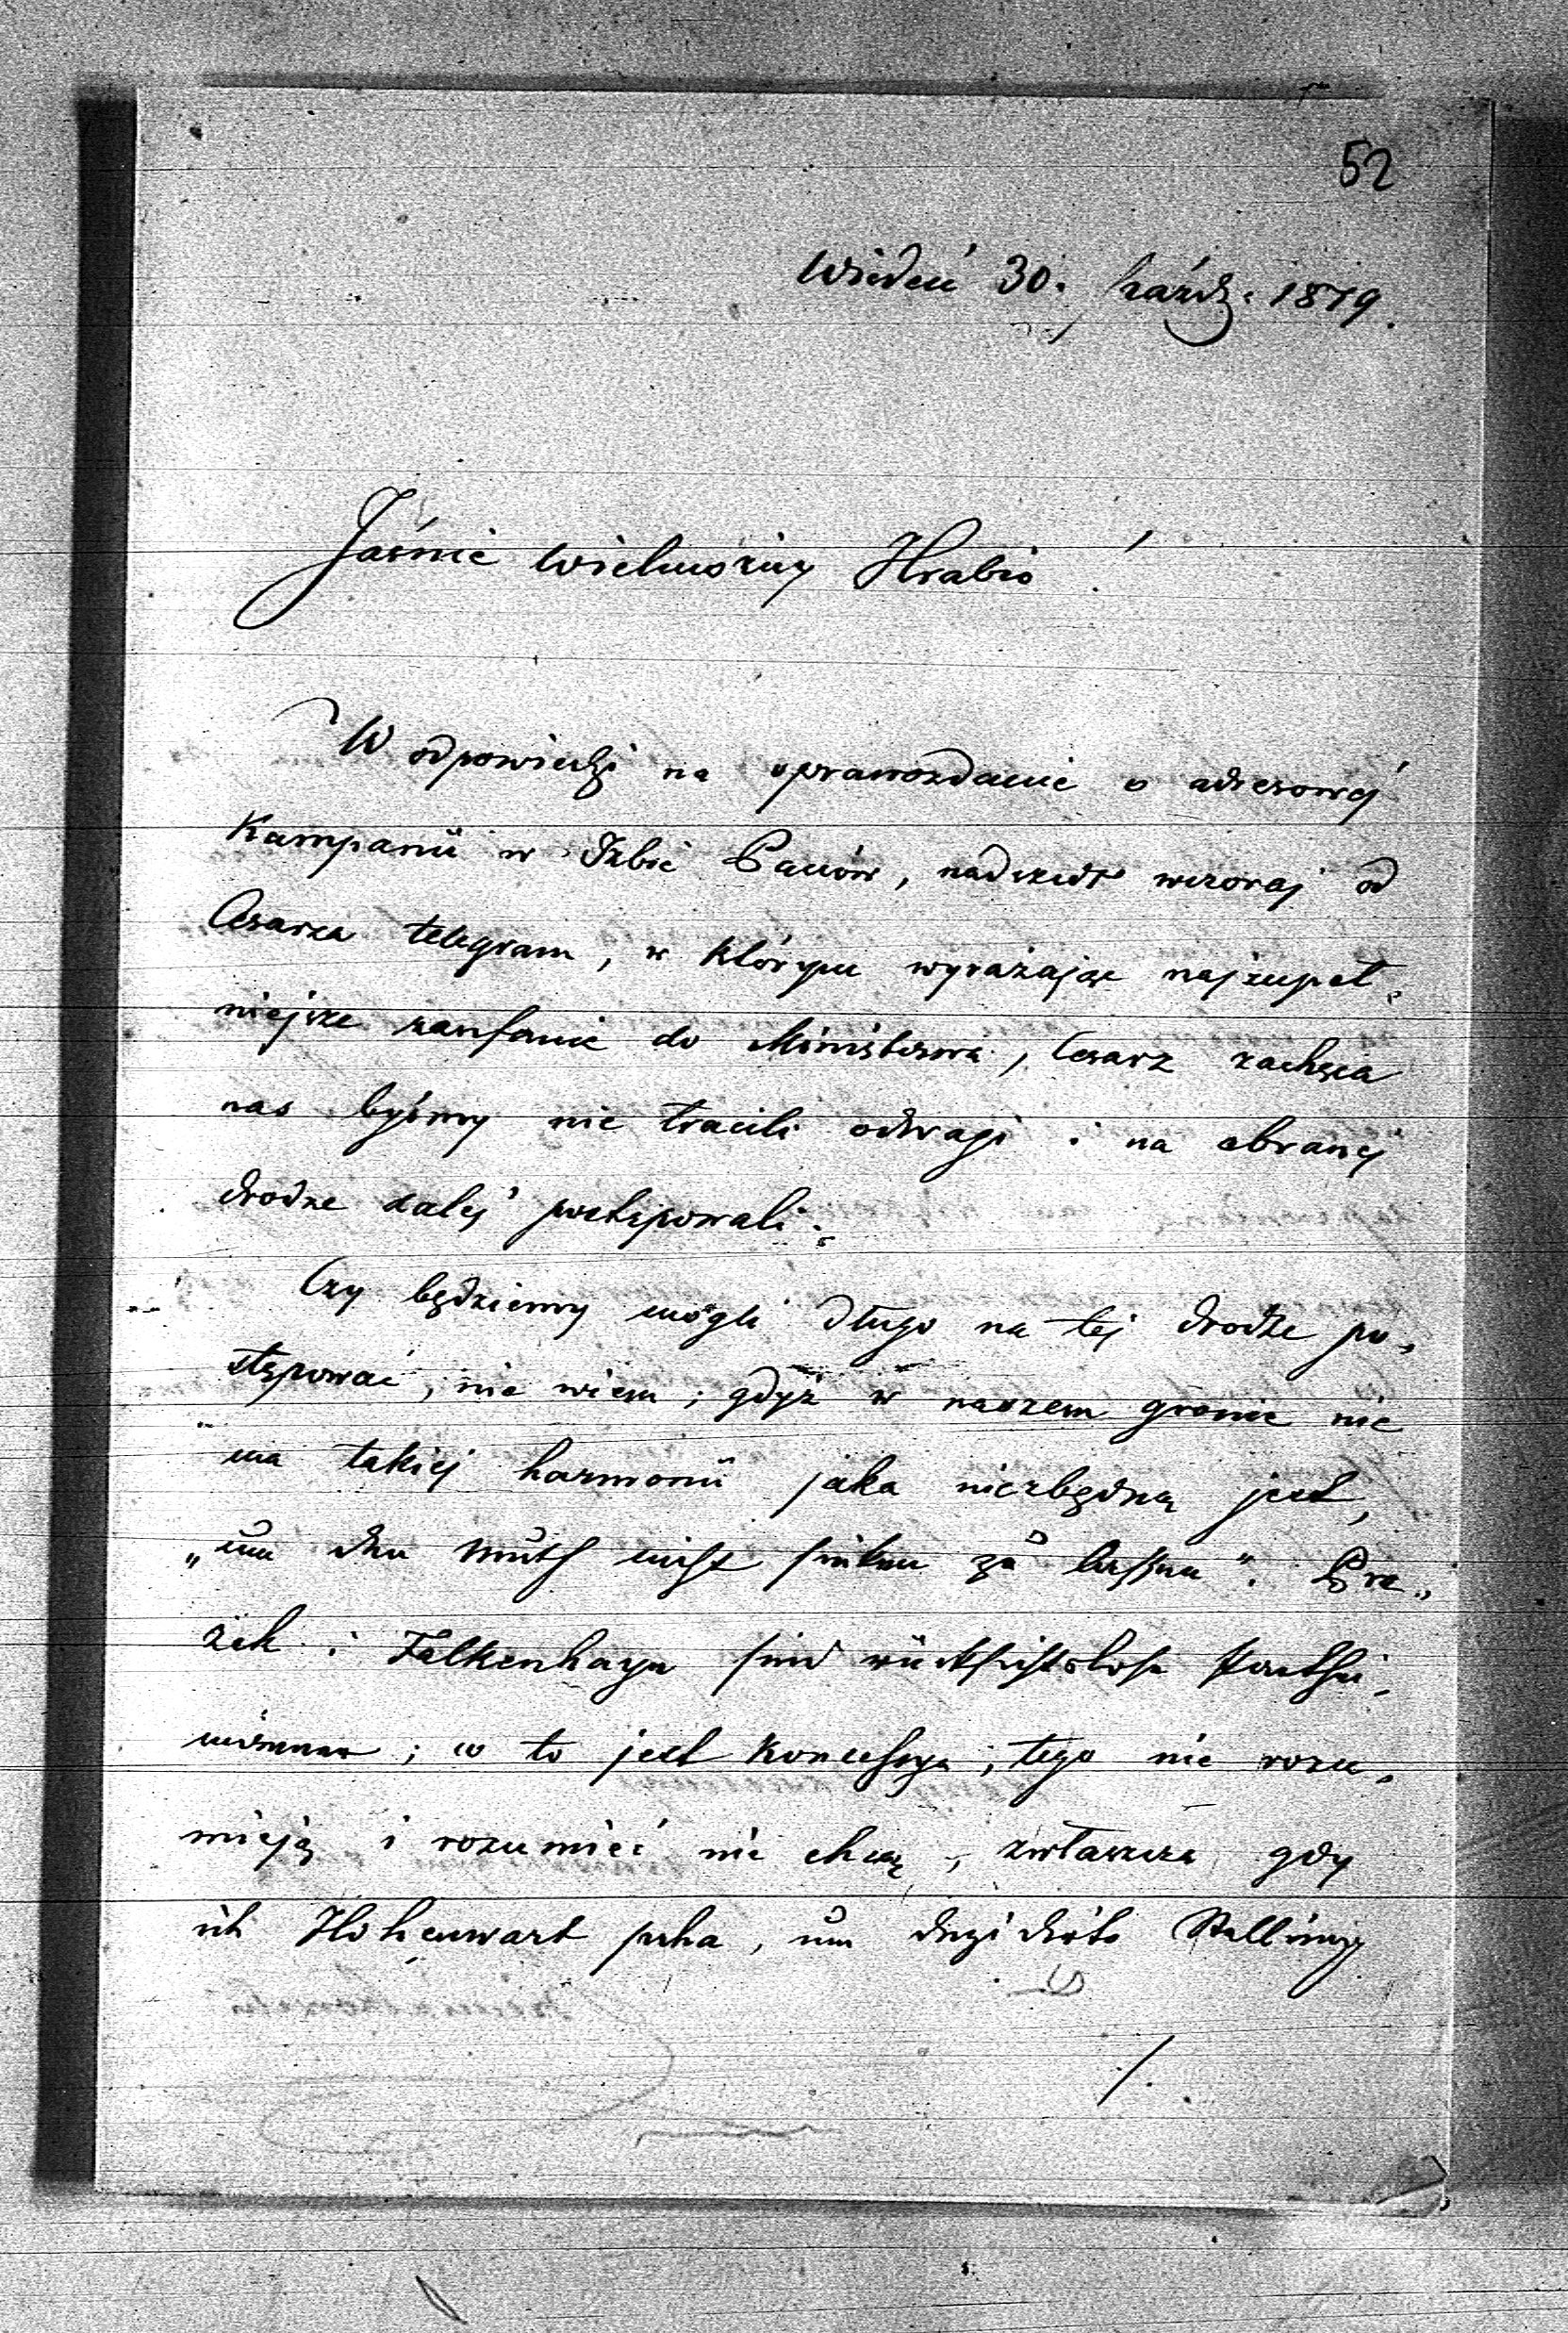 52
Wiedeń 30. Paźdz. 1879.
Jaśnie Wielmożny Hrabio!
W odpowiedzi na sprawozdanie o adresowej
Kampanii w Izbie Panów, nadszedł wczoraj od
Cesarza telegram, w którym wyrażając najzupeł„
niejsze zaufanie do Ministerswa, Cesarz zachęca
nas byśmy nie tracili odwagi i na obranej
drodze dalej postępowali.
Czy będziemy mogli długo na tej drodze po„
stępować, nie wiem; gdyż w naszem gronie nie
ma takiej harmonii jaka niezbędną jest,
„um den Muth nicht sinken zu lassen". Pra„
żak i Falkenhayn sind rücksichtslose Parthei„
männer; co to jest Koncessya, tego nie rozu„
mieją i rozumieć nie chcą, zwłaszcza gdy
ich Hohenwart pcha, um Stellung
/.